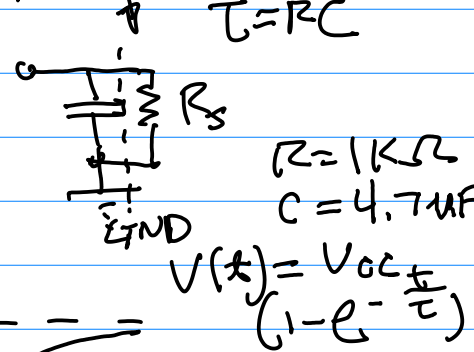 τ=RC
Rs
R=1KΩ
C=4.7uF
GND
V(t)=Voc
(1-e^-t/τ)